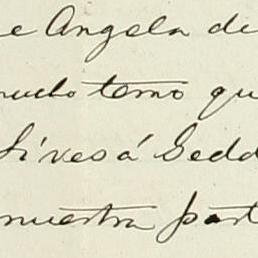 e Angela de
mucho temo qu
Si ves á Gedd
nuestra part